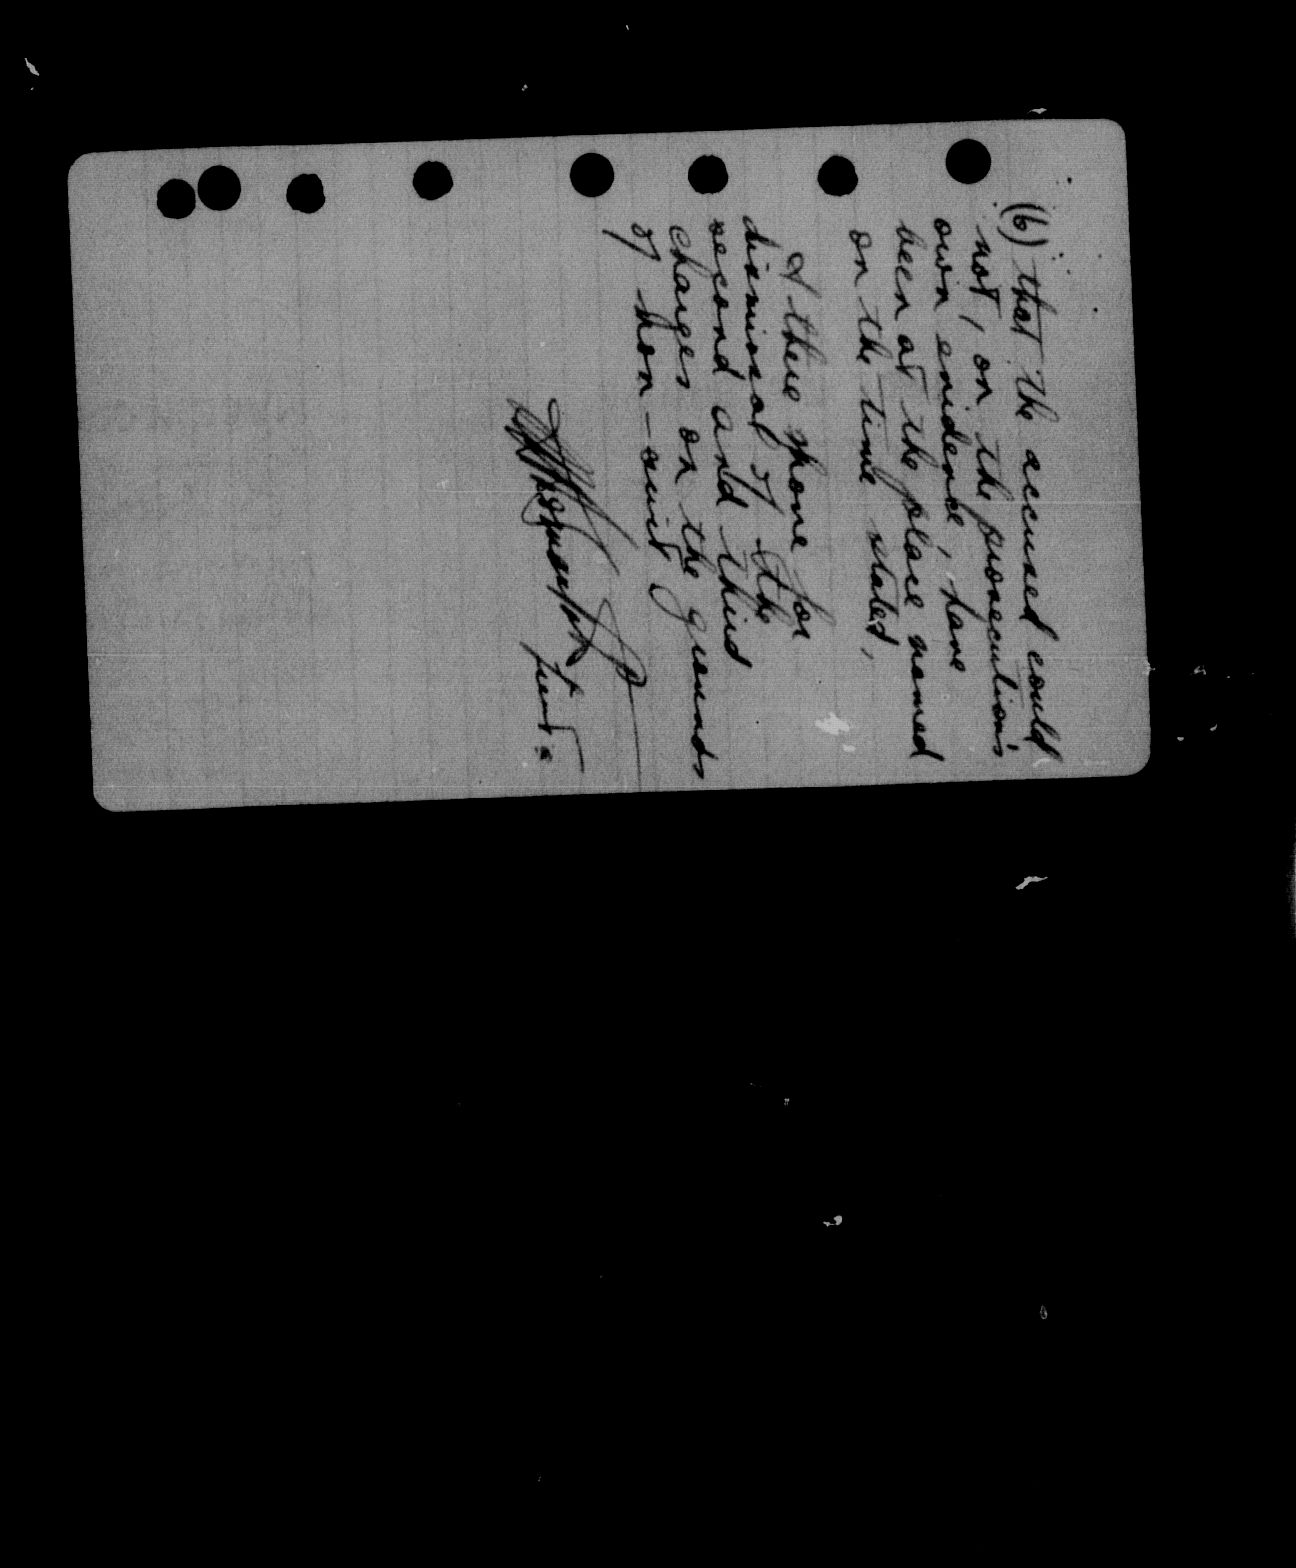 (b) that the accused could
not, on the prosecution's
own evidence, have
been at the place named
on the time stated,
I there move for
dismissal of the
second and third
charges on the grounds
of non-suit
Lieut.